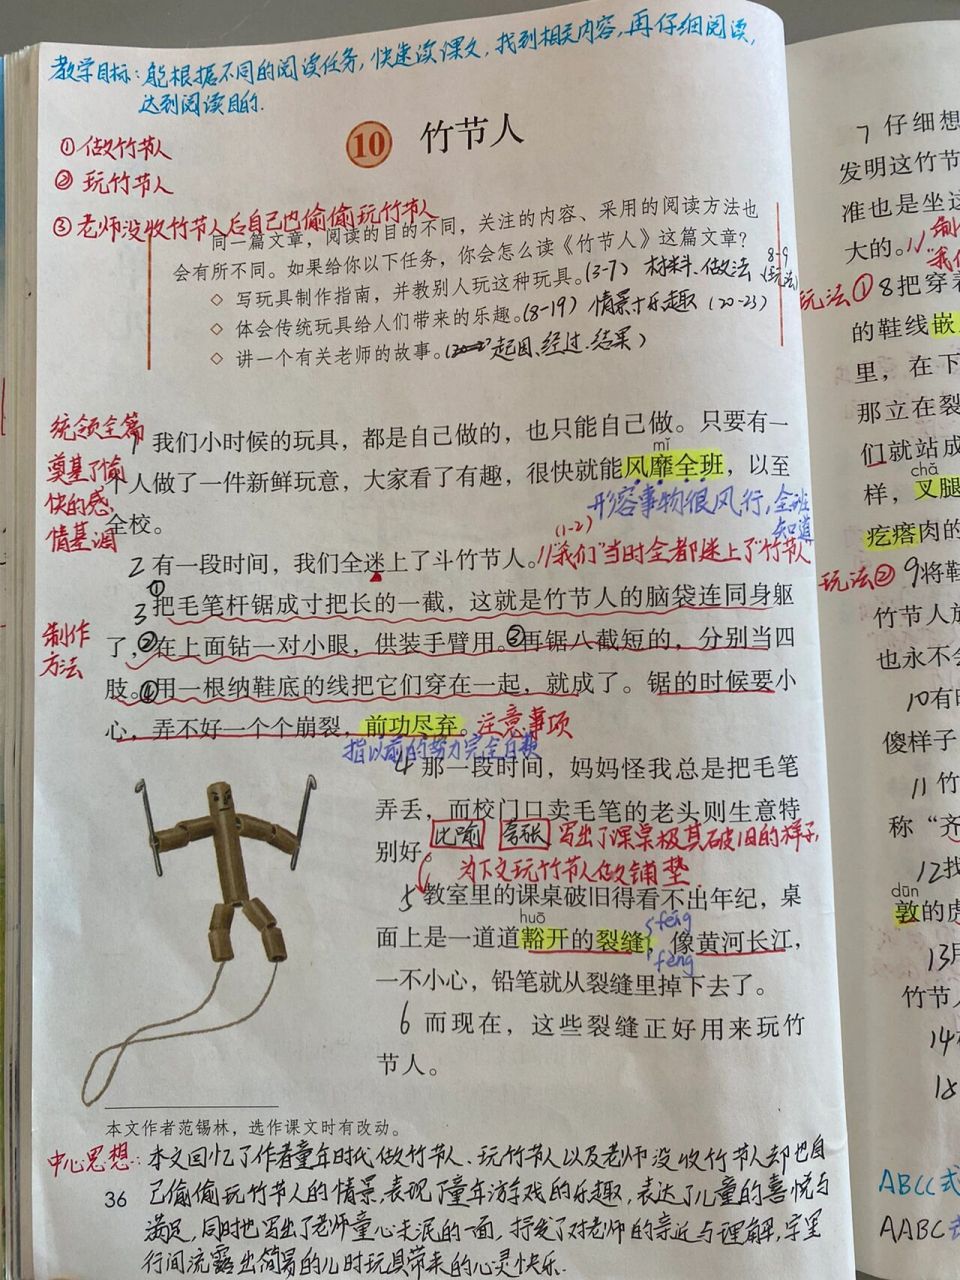 教学目标：能根据不同的阅读任务，快速读课文，找到相关内容，再仔细阅读，
达到阅读目的.
①做竹节人
②玩竹节人
③老师没收竹节人后自己也偷偷玩竹节人
10 竹节人
同一篇文章，阅读的目的不同，关注的内容、采用的阅读方法也
会有所不同。如果给你以下任务，你会怎么读《竹节人》这篇文章？
◇ 写玩具制作指南，并教别人玩这种玩具。(3-7) 材料、做法 8-9 (玩法)
◇ 体会传统玩具给人们带来的乐趣。(8-19) 情景+乐趣 (20-23)
◇ 讲一个有关老师的故事。 起因、经过、结果)
统领全篇
奠基了愉
快的感
情基调
1 我们小时候的玩具，都是自己做的，也只能自己做。只要有一
mǐ
个人做了一件新鲜玩意，大家看了有趣，很快就能风靡全班，以至
形容事物很风行，全班
知道
全校。
(1-2)
2 有一段时间，我们全迷上了斗竹节人。//“我们”当时全都迷上了竹节人
①
3 把毛笔杆锯成寸把长的一截，这就是竹节人的脑袋连同身躯
制作
方法
了，②在上面钻一对小眼，供装手臂用。③再锯八截短的，分别当四
肢。④用一根纳鞋底的线把它们穿在一起，就成了。锯的时候要小
心，弄不好一个个崩裂，前功尽弃。注意事项
指以前的努力完全白费
4 那一段时间，妈妈怪我总是把毛笔
弄丢，而校门口卖毛笔的老头则生意特
别好。
比喻 夸张 写出了课桌极其破旧的样子，
为下文玩竹节人做铺垫
5 教室里的课桌破旧得看不出年纪，桌
huō
féng
fèng
面上是一道道豁开的裂缝，像黄河长江，
一不小心，铅笔就从裂缝里掉下去了。
6 而现在，这些裂缝正好用来玩竹
节人。
本文作者范锡林，选作课文时有改动。
中心思想：本文回忆了作者童年时代做竹节人、玩竹节人以及老师没收竹节人却也自
36 己偷偷玩竹节人的情景，表现了童年游戏的乐趣，表达了儿童的喜悦与
满足，同时也写出了老师童心未泯的一面，抒发了对老师的亲近与理解，字里
行间流露出简易的儿时玩具带来的心灵快乐.
7 仔细想
发明这竹节
准也是坐这
大的。//
玩法① 8 把穿着
的鞋线嵌
里，在下
那立在裂
们就站成
chǎ
样，叉腿
疙瘩肉的
玩法② 9 将鞋
竹节人放
也永不会
10 有时
傻样子
11 竹
称“齐
12 找
dūn
敦的虎
13
竹节人
14
18
ABCC式
AABC式